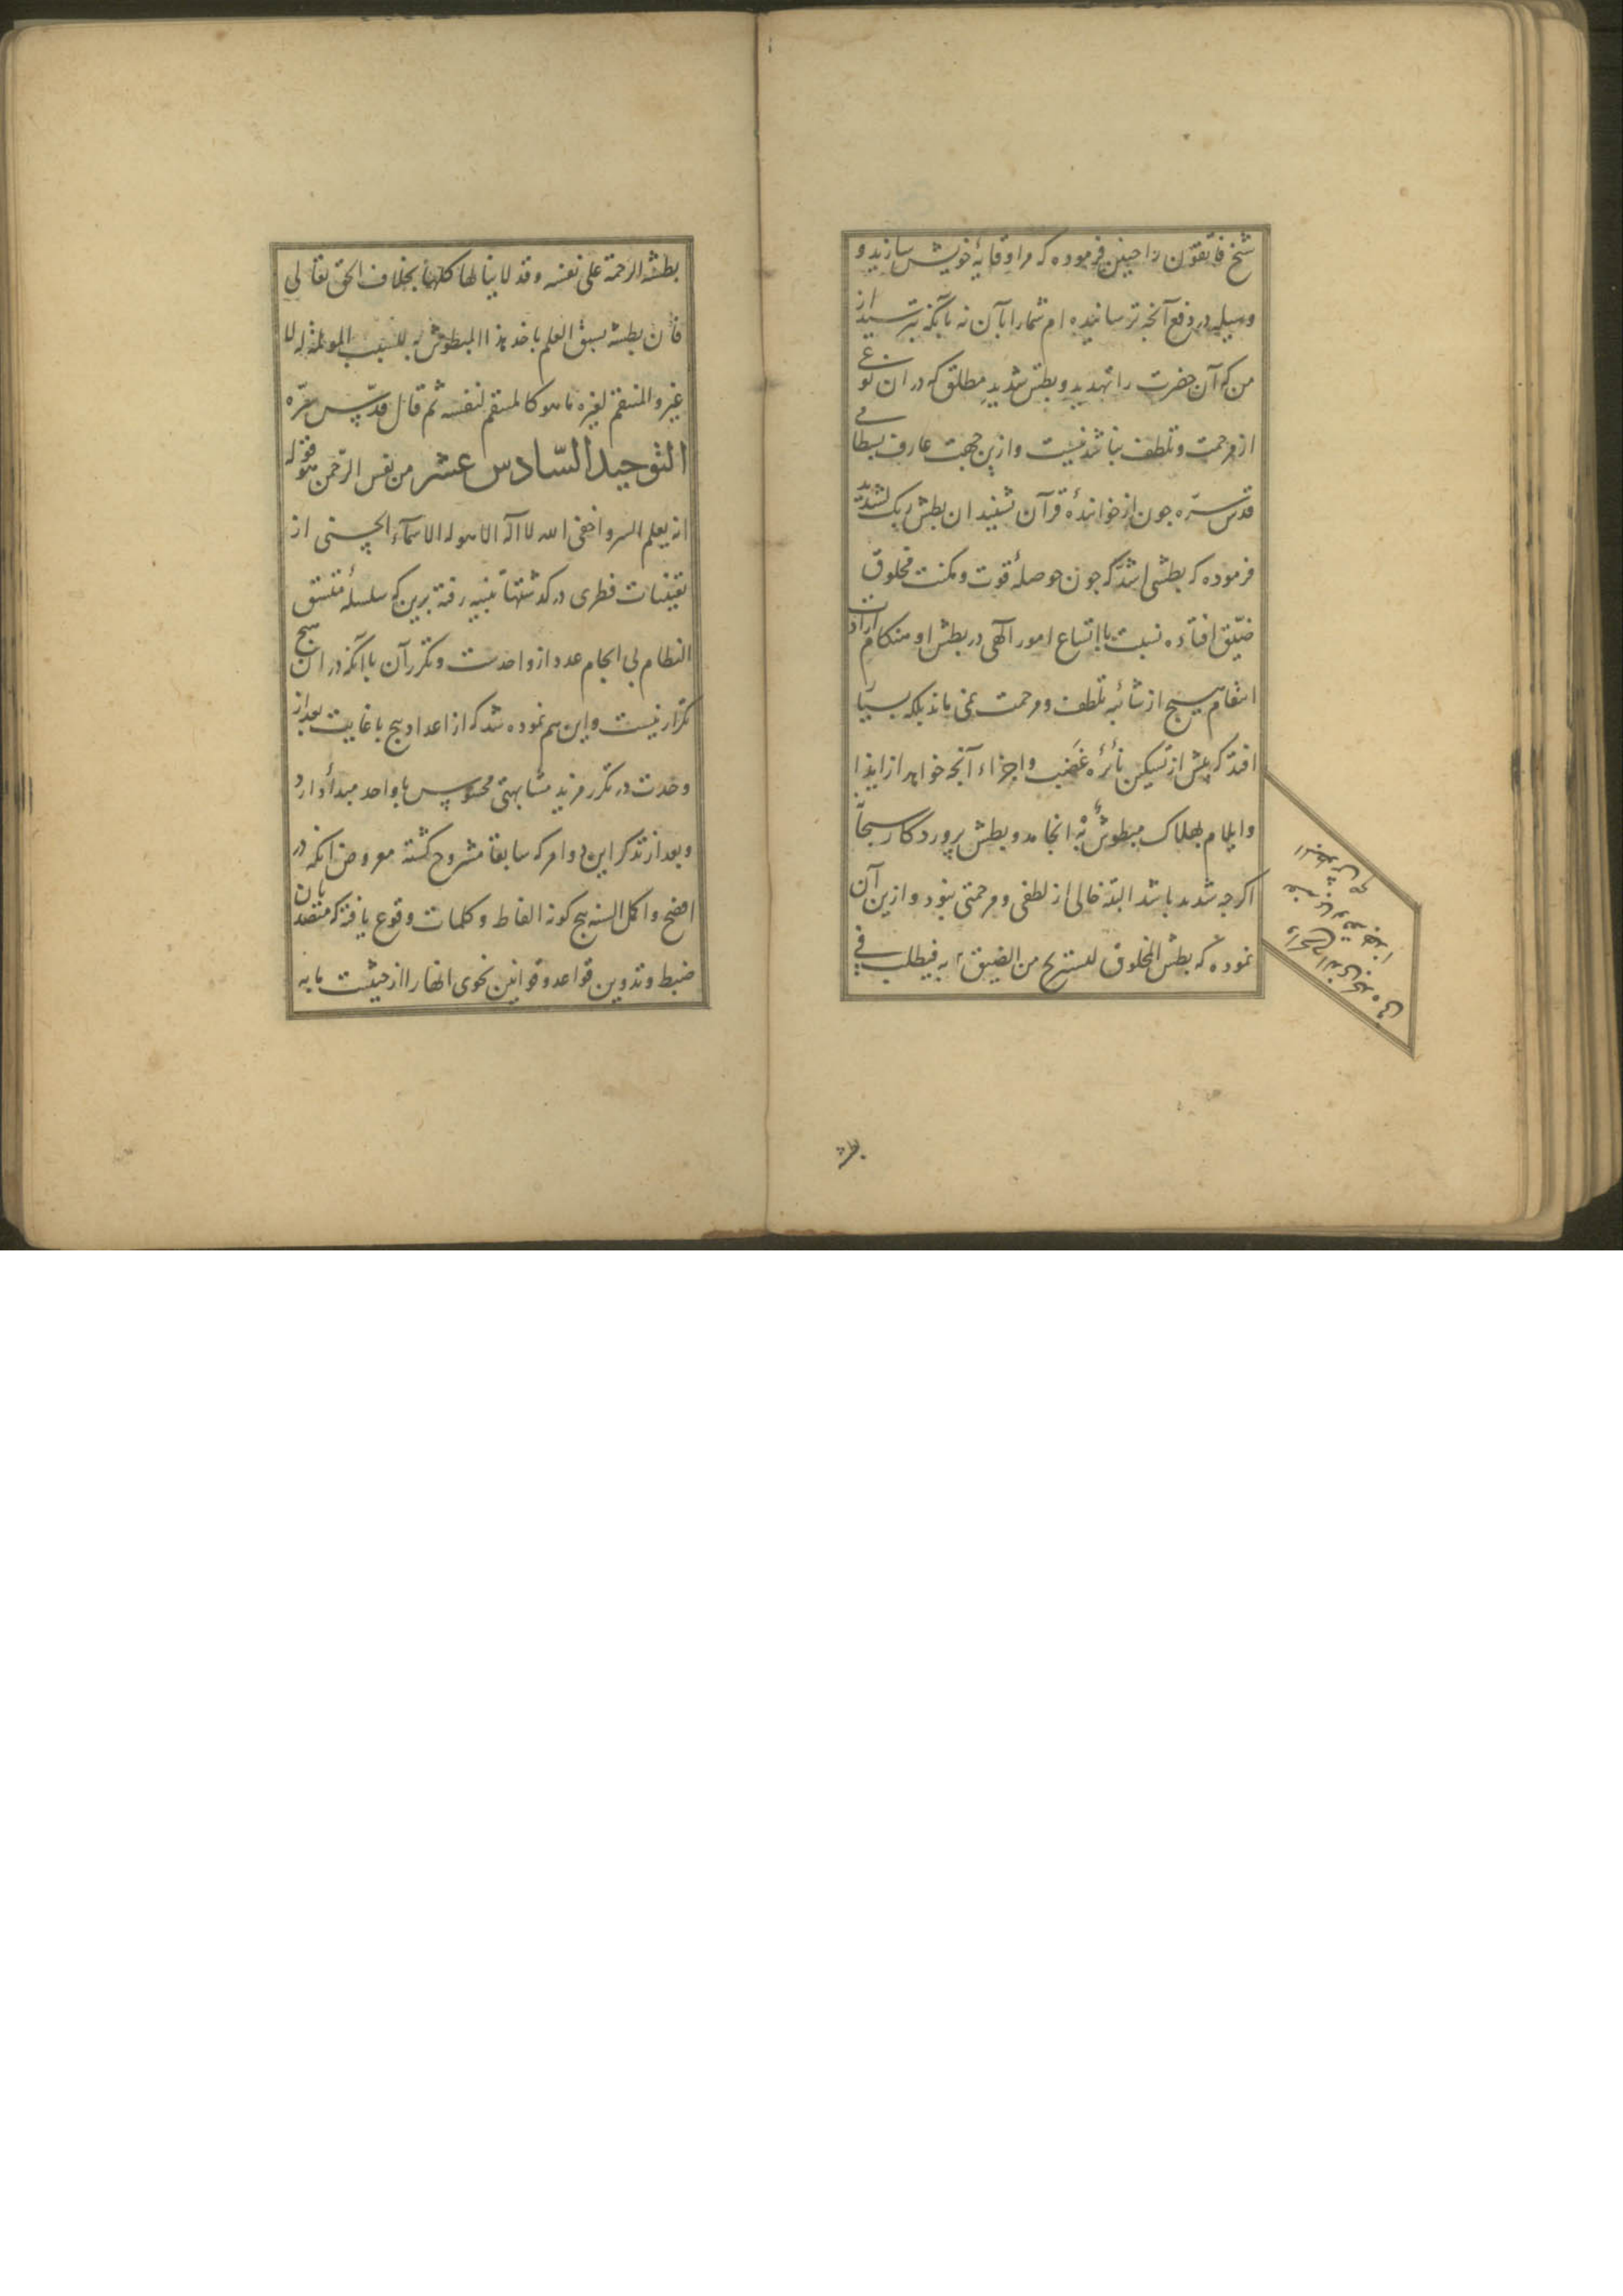 شیخ فاتقون را چنین فرموده که مرا وقایهٔ خویش سازید و
وسیله در دفع آنچه ترسانیده ام شما را بآن نه بآنکه بترسید از
من که آن حضرت را تهدید و بطش شدید مطلق که در ان نوعی
از مرحمت و تلطف نباشد نیست و ازین جهت عارف بسطامی
قدس سره جون از خوانندهٔ قرآن شنید ان بطش ربک لشدید
فرموده که بطشی اشد که جون حوصلهٔ قوت و مکنت مخلوق
ضیّق افتاده نسبت با اتساع امور آلهی در بطش او هنکام ارادت
انتقام هیچ از شائبه تلطف و مرحمت نمی ماند بلکه بسیار
افتد که پیش از تسکین نائره غضب و اجزاء آنچه خواهد از ایذا
و ایلام بهلاک مبطوش به انجامد و بطش پروردکار سبحانه
اکرچه شدید باشد البته خالی از لطفی و مرحمتی نبود و ازین آن
نموده که بطش المخلوق لیستریح من الضیق به فیطلب فی
بطشه
بطشه الرحمة علی نفسه و قد لا ینالها کلها بخلاف الحق تعالی
فأن بطشه بسبق العلم باخذ هذا المبطوش به للسبب الموجب له لا
غیر و المنتقم لغیره ما هو کالمنتقم لنفسه ثم قال قدّس سرّه
التوحید السّادس عشر من نفس الرّحمن هو قوله
انه یعلم السر و اخفی الله لا اله الا هو له الاسمآء الحسنی از
یقینیات فطری در کذشتها تنبیه رفته برین که سلسلهٔ متسق
النظام بی انجام عدد از واحدست و تکرر آن باآنکه در ان هیچ
تکرار نیست و این هم نموده شد که از اعداد هیچ باغایت بعد از
وحدت در تکرر مزید مشابهتی محسوس با واحد مبدأ دارد
و بعد از تذکر این دو امر که سابقا مشروح کشته معروض آنکه در
افصح و اکمل السنه هیچ کونه الفاظ و کلمات وقوع یافته که متصدیان
ضبط و تدوین قواعد و قوانین نحوی انها را از حیثیت ما به